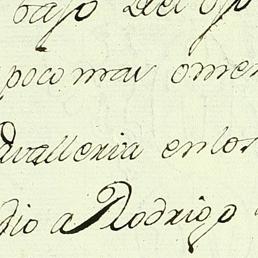 bajo del
poco mas omen
avalleria enlos
dio a Rodrigo